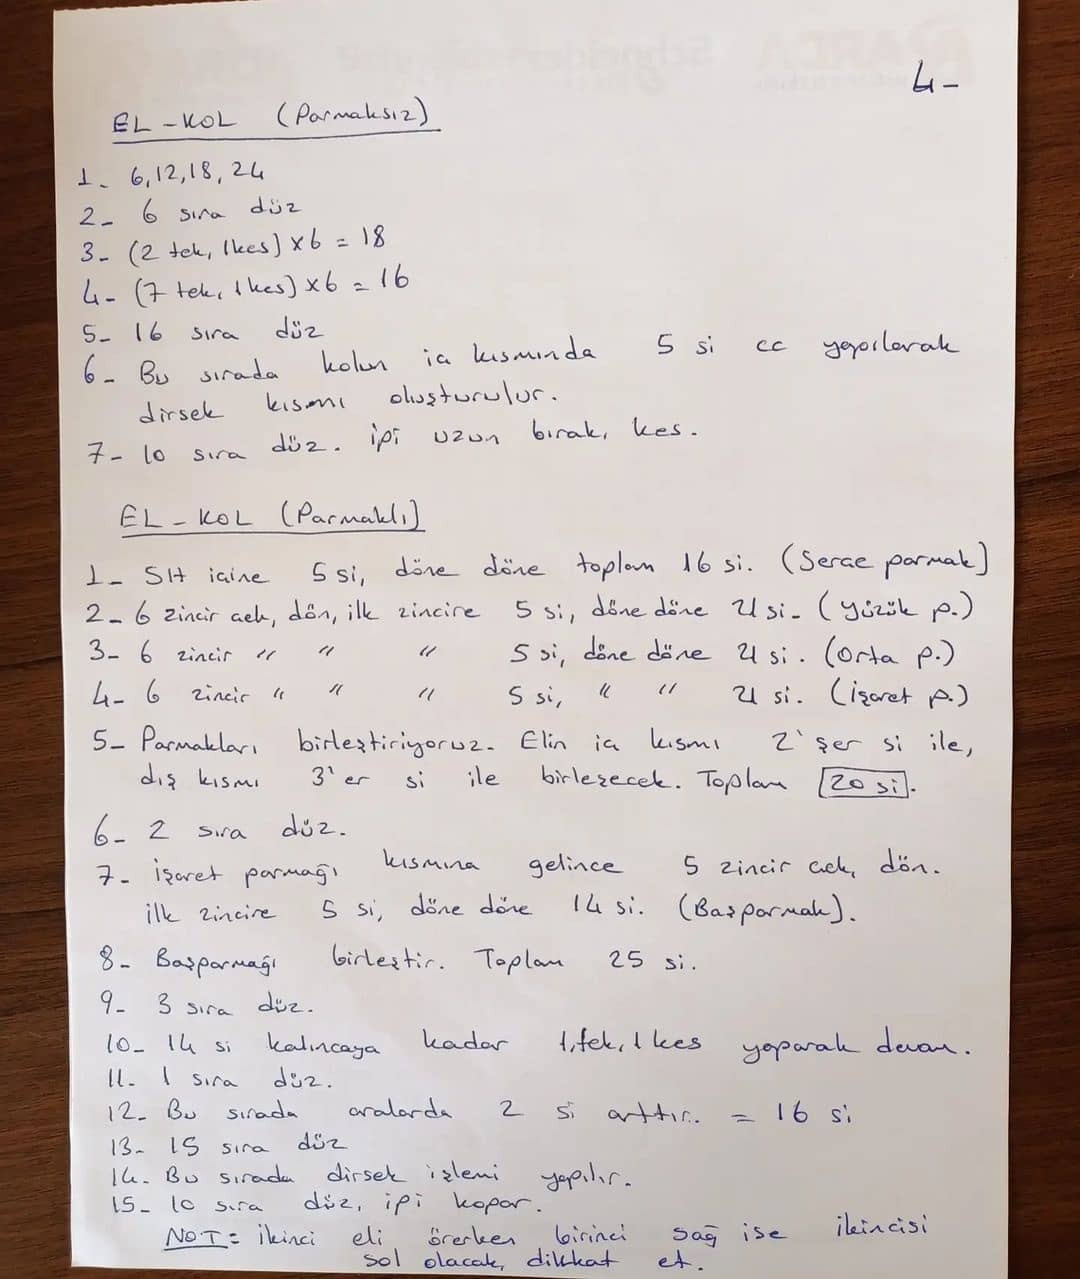 4-
EL-KOL (Parmaksız)
1. 6,12,18,24
2- 6 sıra düz
3- (2 tek, 1kes) x6 = 18
4- (7 tek, 1 kes) x6 = 16
5- 16 sıra düz
6- Bu sırada kolun iç kısmında 5 si cc yapılarak
dirsek kısmı oluşturulur.
7- 10 sıra düz. ipi uzun bırak, kes.
EL-KOL (Parmaklı)
1- SH içine 5 si, döne döne toplam 16 si. (Serçe parmak)
2- 6 zincir çek, dön, ilk zincire 5 si, döne döne 21 si. (yüzük p.)
3- 6 zincir " " " 5 si, döne döne 21 si. (Orta p.)
4- 6 zincir " " " 5 si, " " 21 si. (işaret p.)
5- Parmakları birleştiriyoruz. Elin iç kısmı 2'şer si ile,
dış kısmı 3'er si ile birleşecek. Toplam 20 si.
6- 2 sıra düz.
7- işaret parmağı kısmına gelince 5 zincir çek, dön.
ilk zincire 5 si, döne döne 14 si. (Başparmak).
8- Başparmağı birleştir. Toplam 25 si.
9- 3 sıra düz.
10- 14 si kalıncaya kadar 1,tek, 1 kes yaparak devam.
11- 1 sıra düz.
12- Bu sırada aralarda 2 si arttır. = 16 si
13- 15 sıra düz
14- Bu sırada dirsek işlemi yapılır.
15- 10 sıra düz, ipi kopar.
NOT= ikinci eli örerken birinci sağ ise ikincisi
sol olacak, dikkat et.